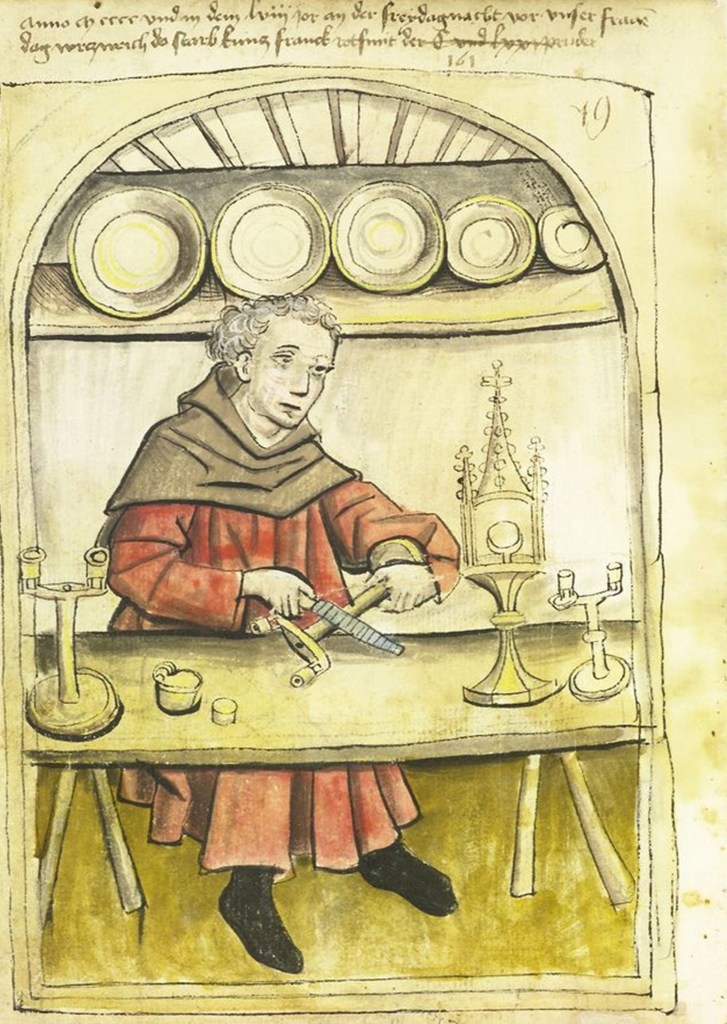 anno m cccc und in dem lviij jor an der freydagnacht vor unser frawē
dag wrczweich do starb kuncz franck rotsmit der
161
79